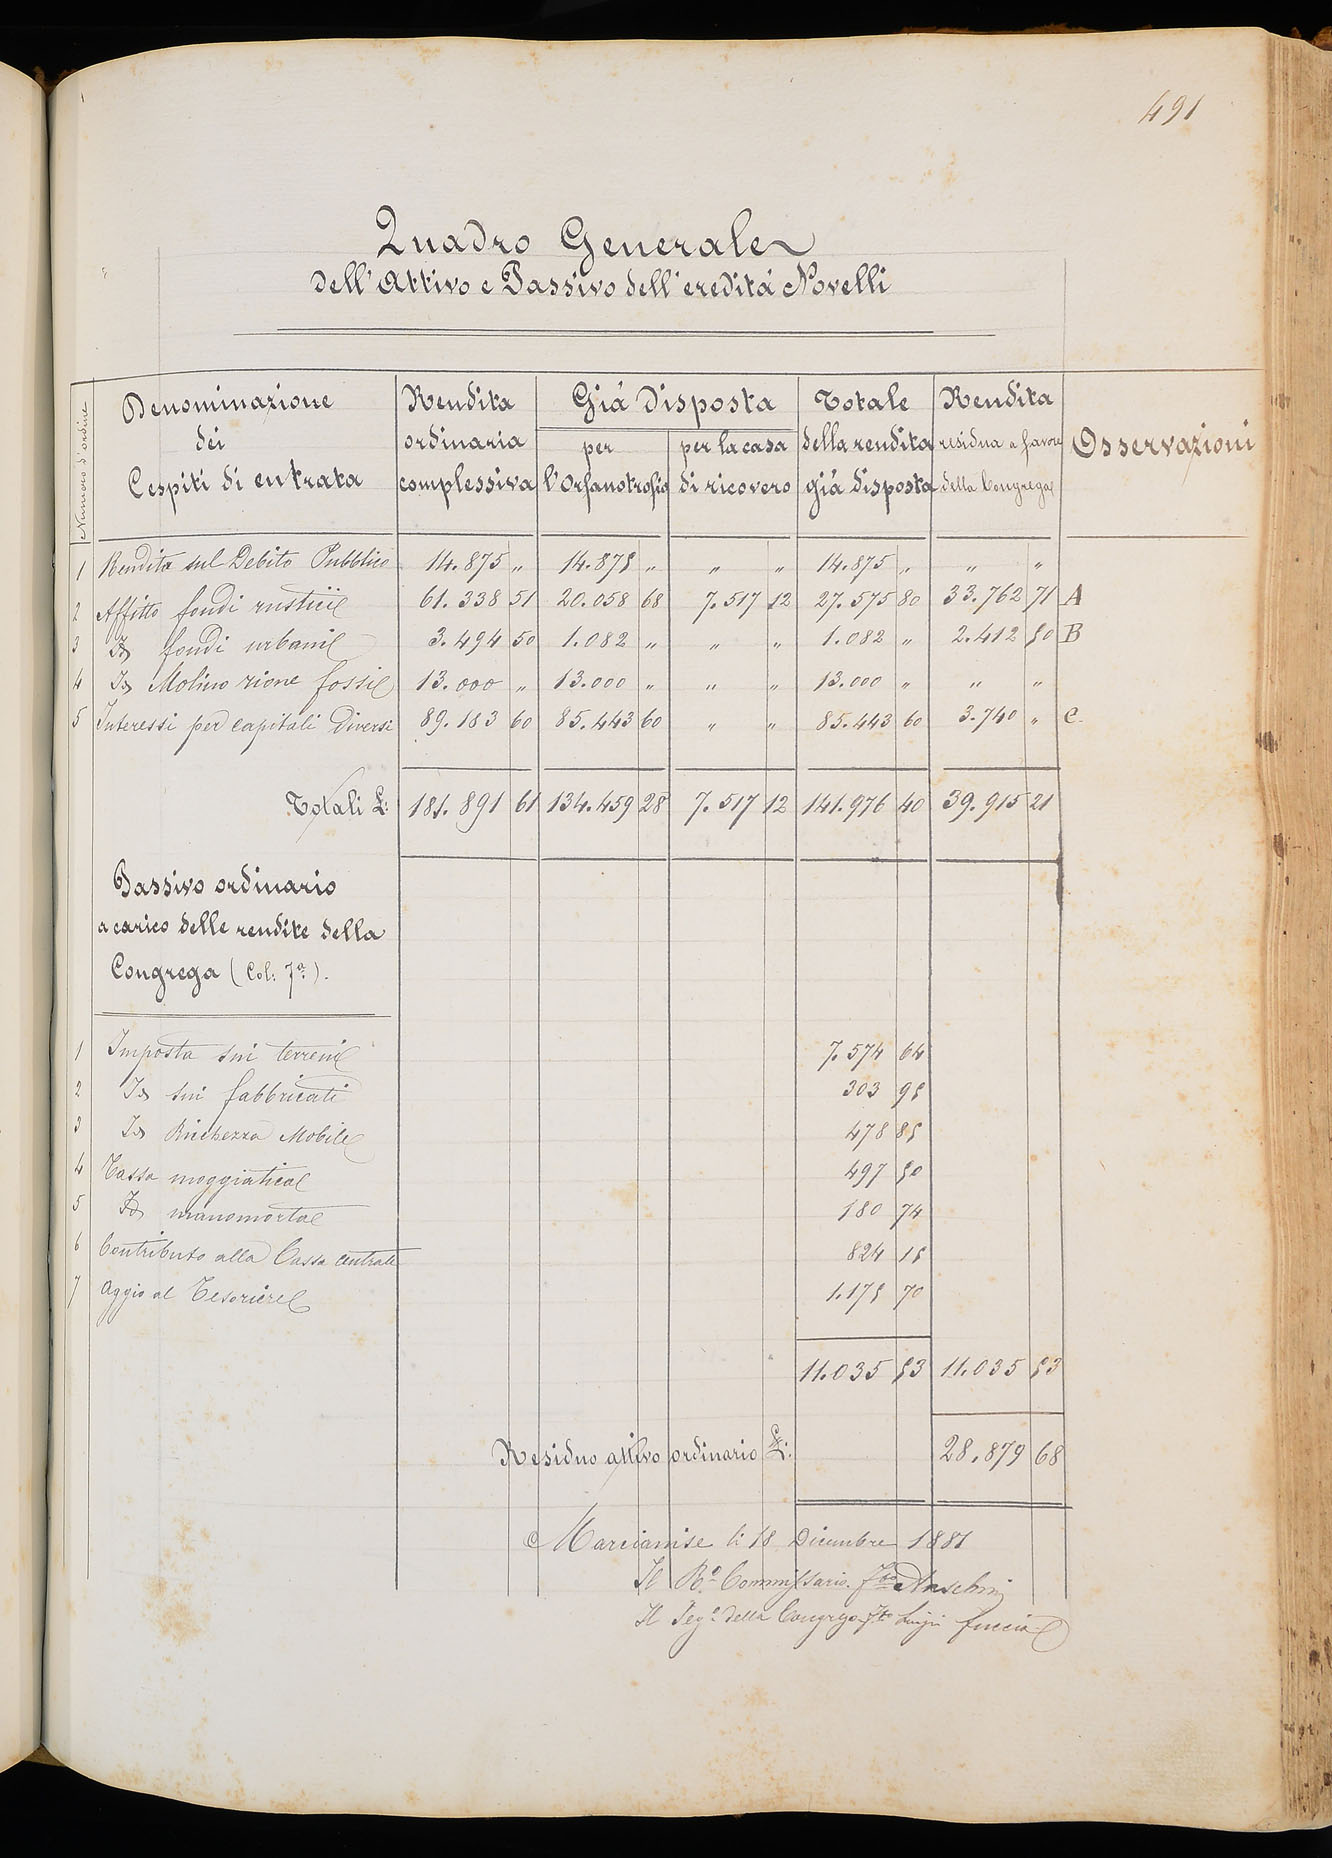 491
Quadro Generale
dell'Attivo e Passivo dell'eredità Novelli
Numero d'ordine
Denominazione dei Cespiti di entrata
Rendita ordinaria complessiva
Già disposta
per l'Orfanotrofio
per la casa di ricovero
Totale della rendita già disposta
Rendita residua a favore della Congrega
Osservazioni
1 Rendita sul Debito Pubblico 14.875 „ 14.875 „ „ „ 14.875 „ „ „
2 Affitto fondi rustici 61.338 51 20.058 68 7.517 12 27.575 80 33.762 71 A
3 Id fondi urbani 3.494 50 1.082 „ „ „ 1.082 „ 2.412 50 B
4 Id Molino rione fossi 13.000 „ 13.000 „ „ „ 13.000 „ „ „
5 Interessi per capitali diversi 89.183 60 85.443 60 „ „ 85.443 60 3.740 „ C.
Totali £: 181.891 61 134.459 28 7.517 12 141.976 40 39.915 21
Passivo ordinario
a carico delle rendite della
Congrega (Col: 7ª).
1 Imposta sui terreni 7.574 64
2 Id sui fabbricati 303 95
3 Id Ricchezza Mobile 478 85
4 Tassa moggiatica 497 50
5 Id manomorta 180 74
6 Contributo alla Cassa centrale 824 15
7 Aggio al Tesoriere 1.175 70
11.035 53 11.035 53
Residuo attivo ordinario £: 28.879 68
Marcianise li 18 Dicembre 1881
Il Rº Commissario. fto
Il Segº della Congrega fto Luigi